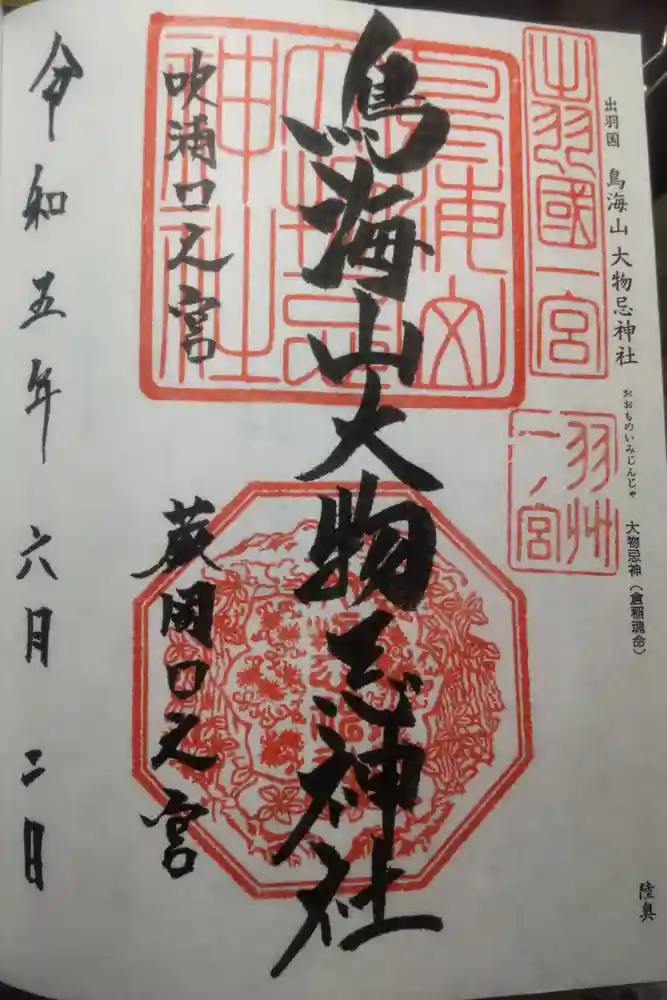 出羽国 鳥海山 大物忌神社
おおものいみじんじゃ
大物忌神（倉稲魂命）
陸奥
出羽國一宮
羽州
一ノ宮
鳥海山大物忌神社
吹浦口之宮
蕨岡口之宮
令和五年 六月 二日